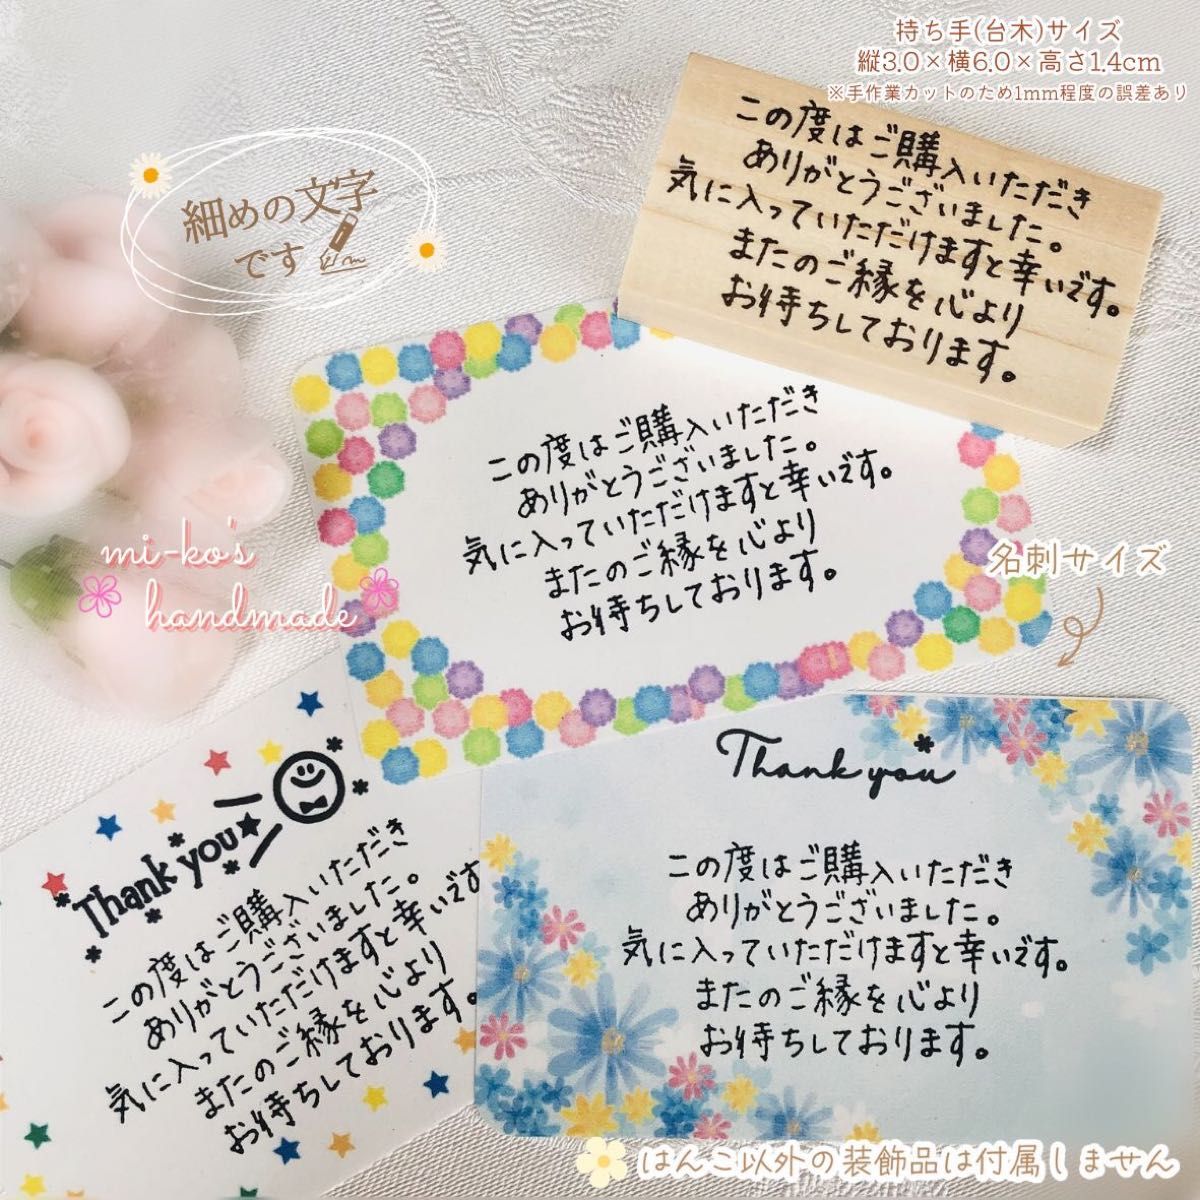 持ち手(台木)サイズ
縦3.0×横6.0×高さ1.4cm
※手作業カットのため1mm程度の誤差あり
細めの文字
です
この度はご購入いただき
ありがとうございました。
気に入っていただけますと幸いです。
またのご縁を心より
お待ちしております。
この度はご購入いただき
ありがとうございました。
気に入っていただけますと幸いです。
またのご縁を心より
お待ちしております。
mi-ko's
handmade
名刺サイズ
Thank you
この度はご購入いただき
ありがとうございました。
気に入っていただけますと幸いです
またのご縁を心より
お待ちしております。
Thank you
この度はご購入いただき
ありがとうございました。
気に入っていただけますと幸いです。
またのご縁を心より
お待ちしております。
はんこ以外の装飾品は付属しません